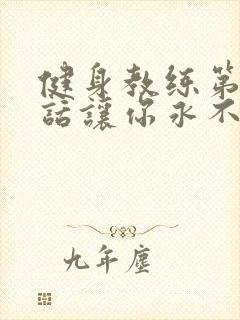 健身教练第
話讓你永不
九年塵